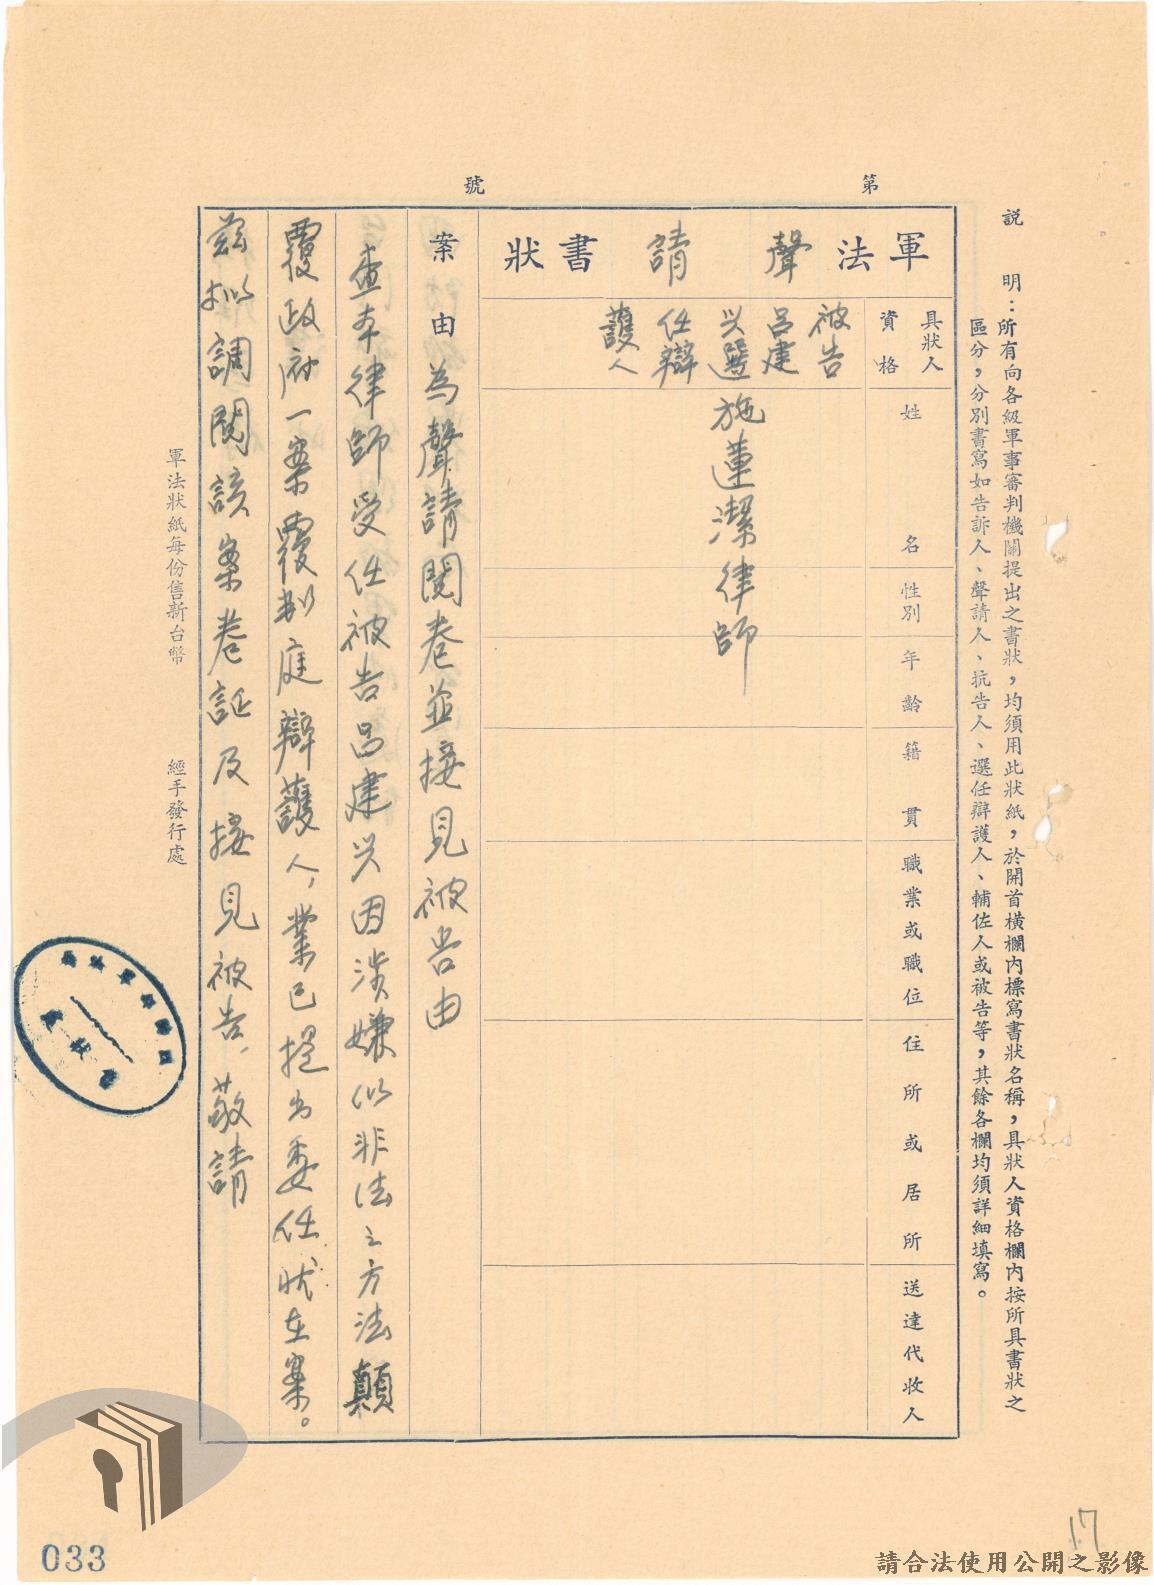 說明：所有向各級軍事審判機關提出之書狀，均須用此狀紙，於開首橫欄內標寫書狀名稱，具狀人資格欄內按所具書狀之
區分，分別書寫如告訴人、聲請人、抗告人、選任辯護人、輔佐人或被告等，其餘各欄均須詳細填寫。
第 號
軍法聲請書狀
具狀人資格
姓名
性別
年齡
籍貫
職業或職位
住所或居所
送達代收人
被告
呂建
兴選
任辯
護人
施蓮潔律師
案由 為聲請閱卷並接見被告由
查本律師受任被告呂建兴因涉嫌以非法之方法顛
覆政府一案覆判庭辯護人，業已提出委任狀在案。
茲擬調閱該案卷証及接見被告，敬請
軍法狀紙每份售新台幣
經手發行處
17
033
請合法使用公開之影像